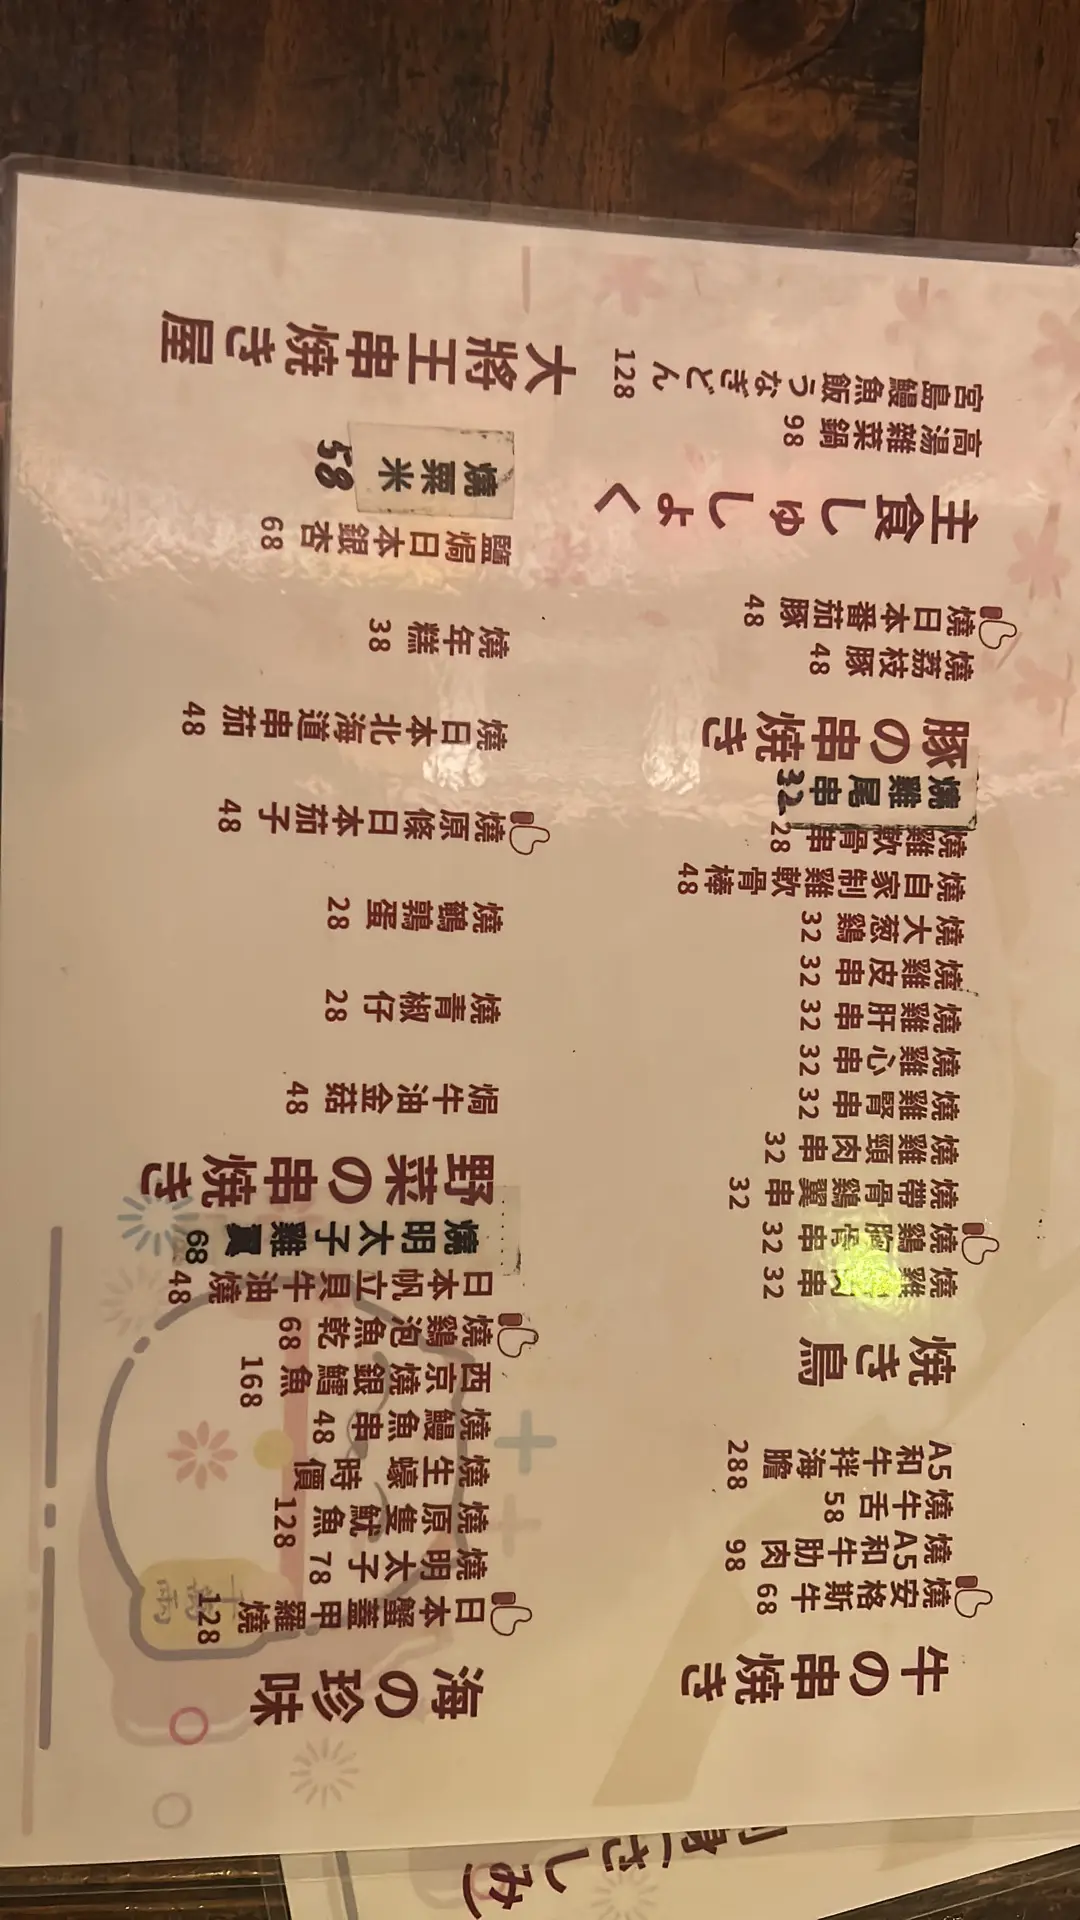 牛の串焼き
燒安格斯牛 68
燒A5和牛肋肉 98
燒牛舌 58
A5和牛拌海膽 288
焼き鳥
燒雞肉串 32
燒鷄胸骨串 32
燒帶骨鷄翼串 32
燒雞頸肉串 32
燒雞腎串 32
燒雞心串 32
燒雞肝串 32
燒雞皮串 32
燒大葱鷄 32
燒自家制雞軟骨棒 48
燒雞軟骨串 28
燒雞尾串 32
豚の串焼き
燒荔枝豚 48
燒日本番茄豚 48
主食しゅしょく
高湯雜菜鍋 98
宮島鰻魚飯うなぎどん 128
海の珍味
日本蟹蓋甲羅燒 128
燒明太子 78
燒原隻魷魚 128
燒生蠔 時價
燒鰻魚串 48
西京燒銀鱈魚 168
燒鷄泡魚乾 68
日本帆立貝牛油燒 48
燒明太子雞翼 68
野菜の串焼き
焗牛油金菇 48
燒青椒仔 28
燒鵪鶉蛋 28
燒原條日本茄子 48
燒日本北海道串茄 48
燒年糕 38
鹽焗日本銀杏 68
燒粟米 58
大將王串焼き屋
(さしみ)